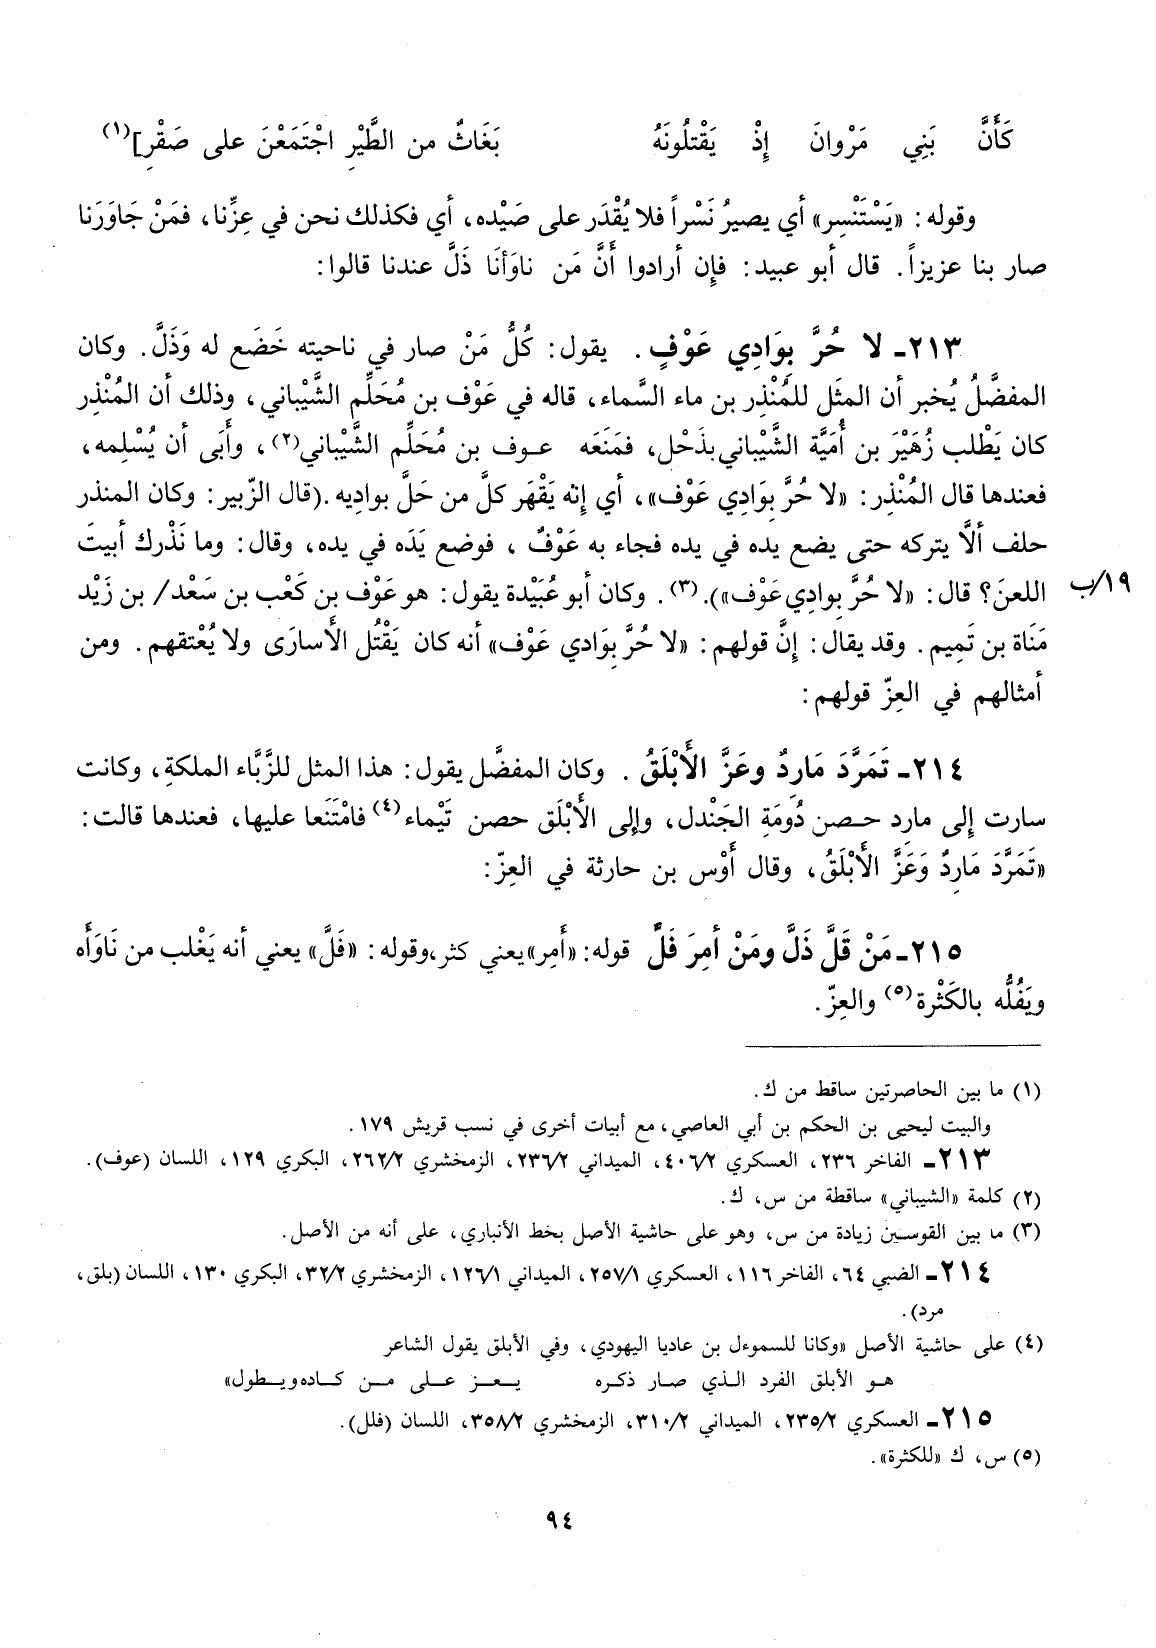 كَأَنَّ بَنِي مَرْوانَ إِذْ يَقْتلُونَهُ بَغَاثٌ من الطَّيْرِ اجْتَمَعْنَ على صَقْرِ](١)
وقوله: «يَسْتَنْسِر» أي يصيرُ نَسْراً فلا يُقْدَر على صَيْده، أي فكذلك نحن في عِزِّنا، فمَنْ جَاوَرَنا
صار بنا عزيزاً. قال أبو عبيد: فإن أرادوا أَنَّ مَن ناوَأنَا ذَلَّ عندنا قالوا:
٢١٣ـ لا حُرَّ بِوَادِي عَوْفٍ. يقول: كُلُّ مَنْ صار في ناحيته خَضَع له وَذَلَّ. وكان
المفضَّلُ يُخبر أن المثَل للمُنْذِر بن ماء السَّماء، قاله في عَوْف بن مُحَلِّم الشَّيْباني، وذلك أن المُنْذِر
كان يَطْلب زُهَيْرَ بن أُمَيَّة الشَّيْباني بذَحْل، فمَنَعَه عـوف بن مُحَلِّم الشَّيْباني(٢)، وأَبَى أن يُسْلِمه،
فعندها قال المُنْذِر: «لا حُرَّ بِوَادِي عَوْف»، أي إنّه يَقْهَر كلَّ من حَلَّ بوادِيه.(قال الزّبير: وكان المنذر
حلف ألاَّ يتركه حتى يضع يده في يده فجاء به عَوْفٌ، فوضع يَدَه في يده، وقال: وما نَذْرك أبيتَ
اللعنَ؟ قال: «لا حُرَّ بوادِي عَوْف»).(٣). وكان أبو عُبَيْدة يقول: هو عَوْف بن كَعْب بن سَعْد/ بن زَيْد ١٩/ب
مَنَاة بن تَمِيم. وقد يقال: إنَّ قولهم: «لا حُرَّ بوَادي عَوْف» أنه كان يَقْتُل الأسارَى ولا يُعْتقهم. ومن
أمثالهم في العِزّ قولهم:
٢١٤ـ تَمَرَّدَ مَارِدٌ وعَزَّ الأَبْلَقُ. وكان المفضَّل يقول: هذا المثل للزَّبَّاء الملكةِ، وكانت
سارت إلى مارِد حـصن دُومَةِ الجَنْدل، وإلى الأَبْلَق حصن تَيْماء(٤) فامْتَنَعا عليها، فعندها قالت:
«تَمَرَّدَ مَارِدٌ وَعَزَّ الأَبْلَقُ، وقال أَوْس بن حارثة في العِزّ:
٢١٥ـ مَنْ قَلَّ ذَلَّ ومَنْ أمِرَ فَلَّ قوله: «أَمِر» يعني كثر،وقوله: «فَلَّ» يعني أنه يَغْلب من نَاوَأه
ويَفُلُّه بالكَثْرة(٥) والعِزّ.
(١) ما بين الحاصرتين ساقط من ك.
والبيت ليحيى بن الحكم بن أبي العاصي، مع أبيات أخرى في نسب قريش ١٧٩.
٢١٣ـ الفاخر ٢٣٦، العسكري ٤٠٦/٢، الميداني ٢٣٦/٢، الزمخشري ٢٦٢/٢، البكري ١٢٩، اللسان (عوف).
(٢) كلمة «الشيباني» ساقطة من س، ك.
(٣) ما بين القوسين زيادة من س، وهو على حاشية الأصل بخط الأنباري، على أنه من الأصل.
٢١٤ـ الضبي ٦٤، الفاخر ١١٦، العسكري ٢٥٧/١، الميداني ١٢٦/١، الزمخشري ٣٢/٢، البكري ١٣٠، اللسان (بلق،
مرد).
(٤) على حاشية الأصل «وكانا للسموءل بن عاديا اليهودي، وفي الأبلق يقول الشاعر
هـو الأبلق الفرد الـذي صـار ذكـره يـعـز عـلى مـن كـاده ويـطول»
٢١٥ـ العسكري ٢٣٥/٢، الميداني ٣١٠/٢، الزمخشري ٣٥٨/٢، اللسان (فلل).
(٥) س، ك «للكثرة».
٩٤